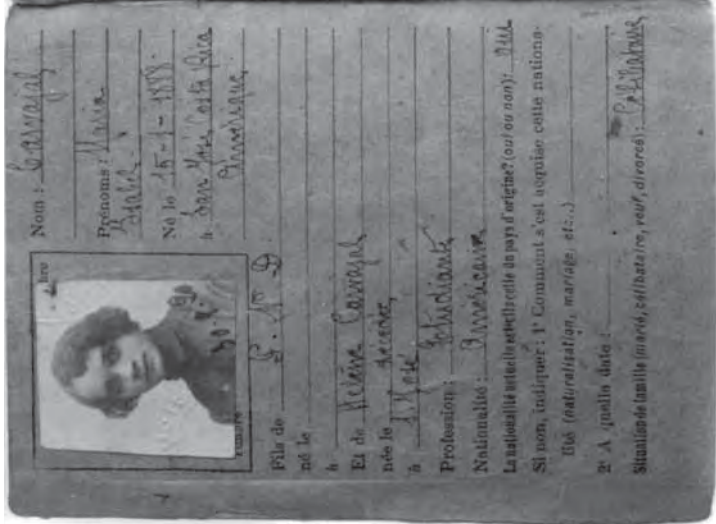 Nom : Carvajal
Prénoms : Maria
Isabel
Né le 15-1-1888
à San José Costa Rica
Amérique
Timbre
Fils de
né le
à
Et de Helena Carvajal
née le
à S. José
Profession : Estudiante
Nationalité : Américaine
La nationalité actuelle est-elle celle du pays d'origine? (oui ou non): oui
Si non, indiquer : 1° Comment s'est acquise cette nationa-
lité (naturalisation, mariage, etc..)
2° A quelle date :
Situation de famille (marié, célibataire, veuf, divorcé) : Célibataire